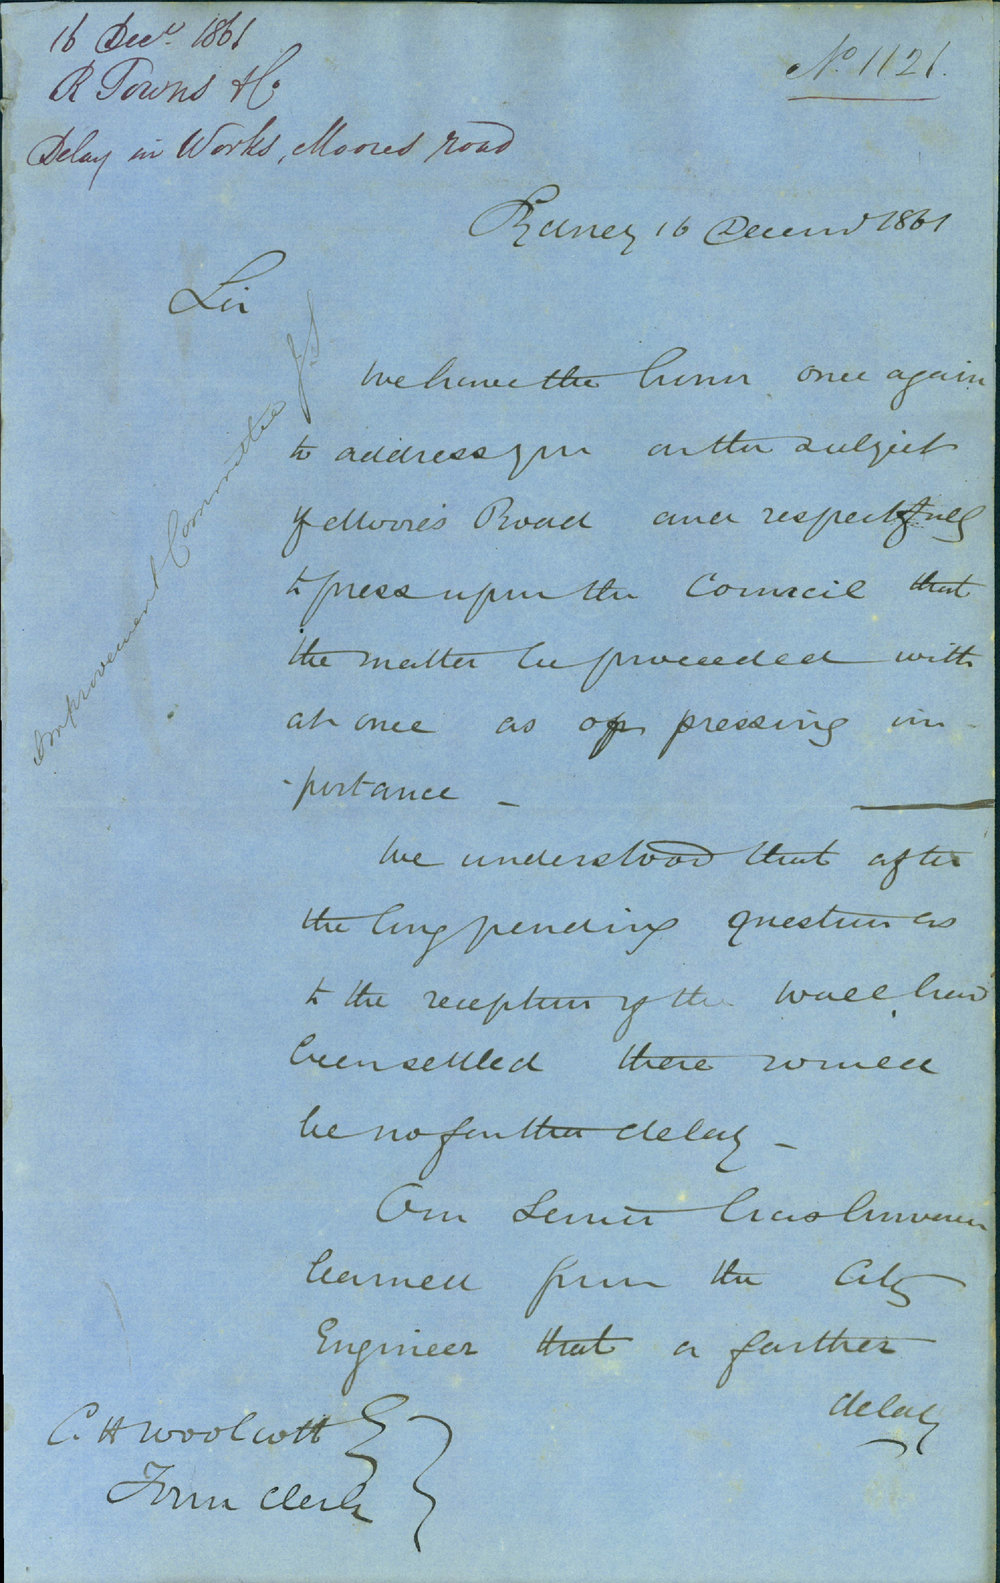 16 Decr. 1861
R Towns & Co
Delay in Works, Moores road
No. 1121.
Sydney 16 Decemr 1861
Sir
Improvement Committee
We have the honor once again
to address you on the subject
of Moore's Road and respectfully
to press upon the Council that
the matter be proceeded with
at once as of pressing im-
-portance _
We understood that after
the long pending question as
to the reception of the wall had
been settled there would
be no further delay _
Our Senior has however
learned from the City
Engineer that a further
delay
C. H Woolcott Esq
Town Clerk